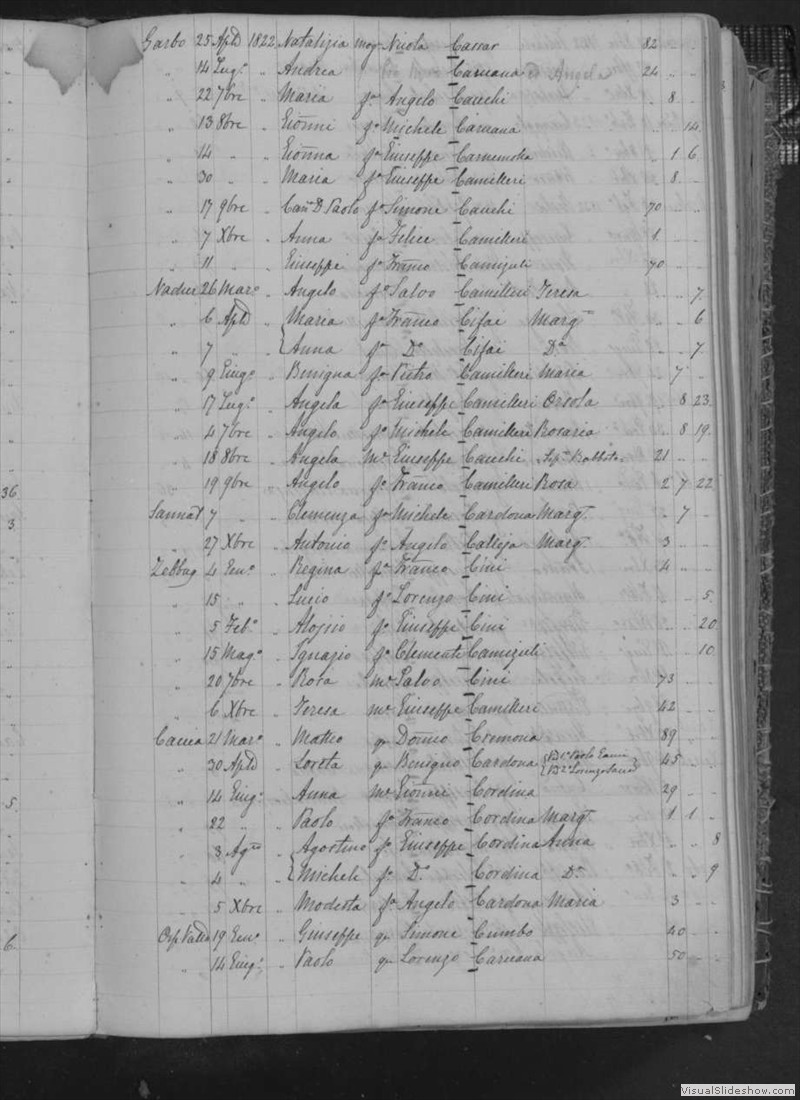 Garbo 25 Aple 1822 Natalizia mog. Nicola Cassar 82 " "
" 14 Lug.o " Andrea Caruana 24 " "
" 22 7bre " Maria fa Angelo Cauchi " 8 "
" 13 8bre " Gionni fo Michele Caruana " " 14
" 14 " " Gionna fa Giuseppe " 1 6
" 30 " " Maria fa Giuseppe Camilleri " 8 "
" 17 9bre " Can.o D. Paolo fo Simone Cauchi 70 " "
" 7 Xbre " Anna fa Felice Camilleri 1 " "
" 11 " " Giuseppe fo Franco Camizuli 70 " "
Nadur 26 Maro " Angelo fo Salvo Camilleri Teresa " " 7
" 6 Aple " Maria fa Franco Cifai Marg.ta " " 6
" 7 " Anna fa Do Cifai Da " " 7
" 9 Giugo " Benigna fa Pietro Camilleri Maria " 7 "
" 17 Lug.o " Angela fa Giuseppe Camilleri Orsola " 8 23
" 4 7bre " Angelo fo Michele Camilleri Rosaria " 8 19
" 18 8bre " Angela Me Giuseppe Cauchi 21 " "
" 19 9bre " Angelo fo Franco Camilleri Rosa 2 7 22
36
Sannat 7 " " Clemenza fa Michele Cardona Marg.ta " 7 "
3
" 27 Xbre " Antonio fo Angelo Calleja Marg.ta 3 " "
Zebbug 4 Geno " Regina fa Franco Cini 4 " "
" 15 " " Lucio fo Lorenzo Cini " " 5
" 5 Feb.o " Aloisio fo Giuseppe Cini " " 20
" 15 Mag.o " Ignazio fo Clemente Camizuli " " 10
" 20 7bre " Rosa me Salvo Cini 73 " "
" 6 Xbre " Teresa me Giuseppe Camilleri 42 " "
Caccia 21 Maro " Matteo qm Domco Cremona 89 " "
" 30 Aple " Loreta qm Benigno Cardona 45 " "
5
" 14 Giug.o " Anna me Gionni Cordina 29 " "
" 22 " " Paolo fo Franco Cordina Marg.ta 1 1 "
" 3 Ago " Agostino fo Giuseppe Cordina Anna " " 8
" 4 " " Michele fo Do Cordina Da " " 9
" 5 Xbre " Modesta fa Angelo Cardona Maria 3 " "
6
19 Geno " Giuseppe qm Simone Cumbo 40 " "
" 14 Giug.o " Paolo qm Lorenzo Caruana 50 " "
VisualSlideshow.com